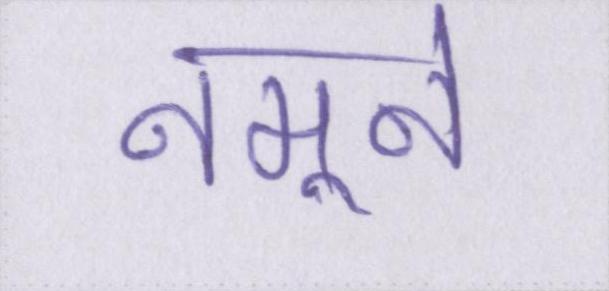 नमूने